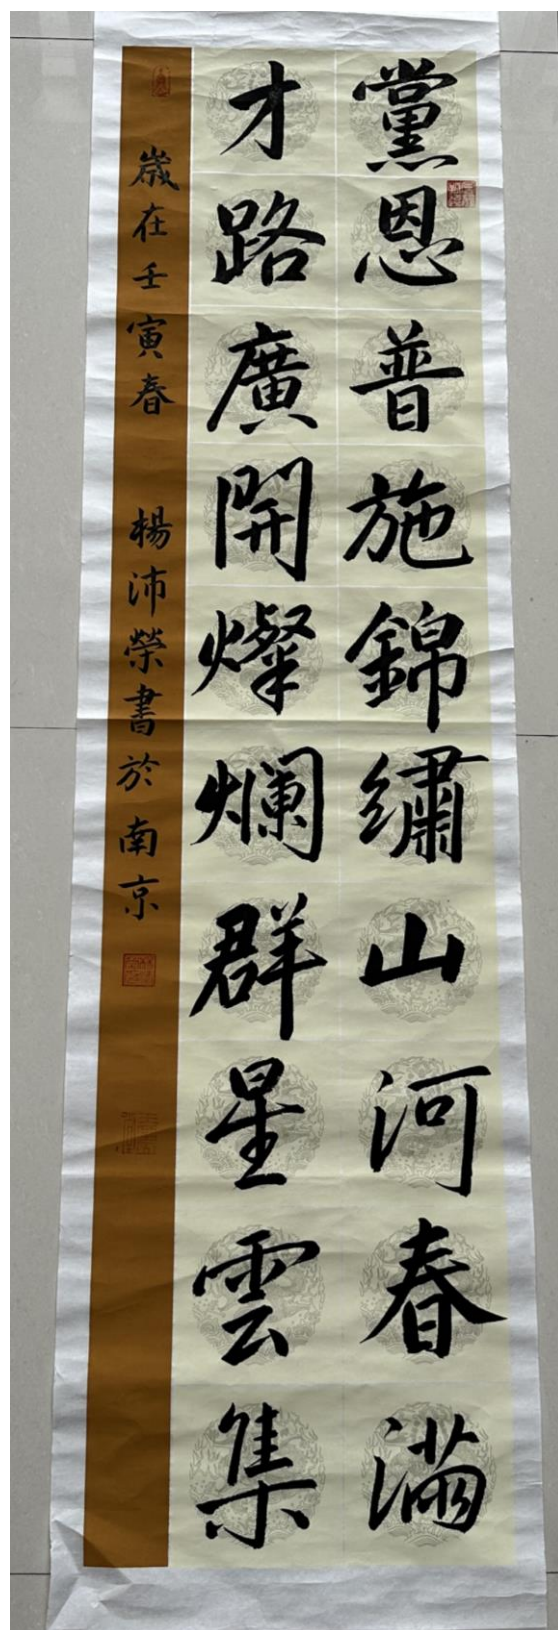 黨恩普施錦繡山河春滿
才路廣開燦爛群星雲集
歲在壬寅春 楊沛榮書於南京